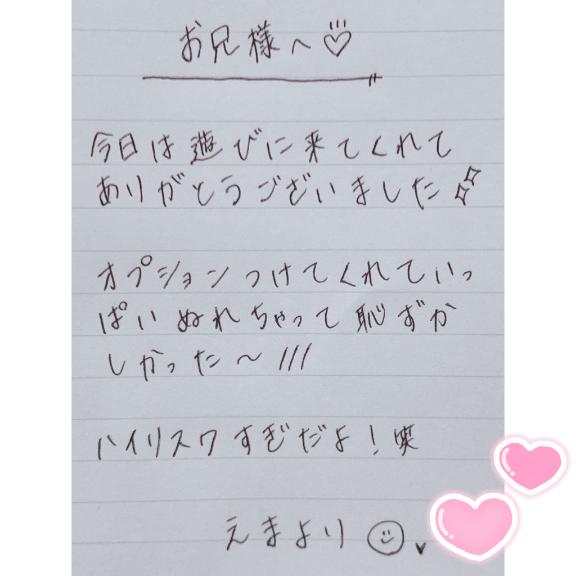 お兄様へ♡
今日は遊びに来てくれて
ありがとうございました✨
オプションつけてくれていっ
ぱいぬれちゃって恥ずか
しかった～///
ハイリスクすぎだよ！笑
えまより☺♥